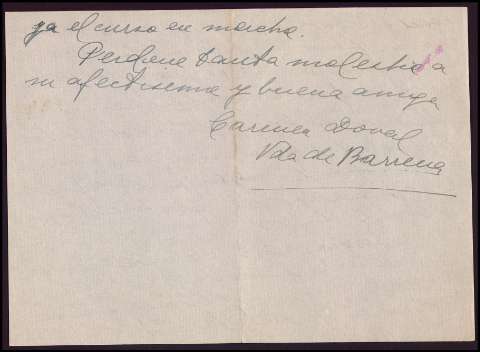 ya el curso en marcha.
Perdone tanta molestia a
su afectisima y buena amiga
Carmen Doval
Vda de Barrena